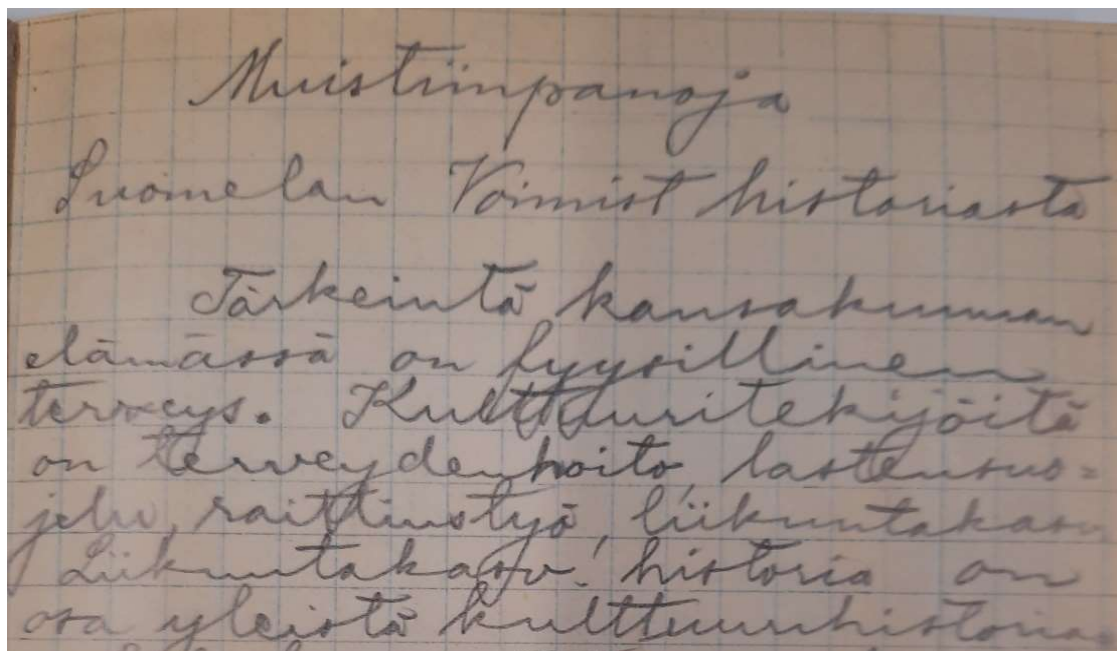 Muistiinpanoja
Suomelan Voimist historiasta
Tärkeintä kansakunnan
elämässä on fyysillinen
terveys. Kulttuuritekijöitä
on terveydenhoito, lastensuo=
jelu, raittiustyö, liikuntakasv
Liikuntakasv. historia on
osa yleistä kulttuurihistoriaa